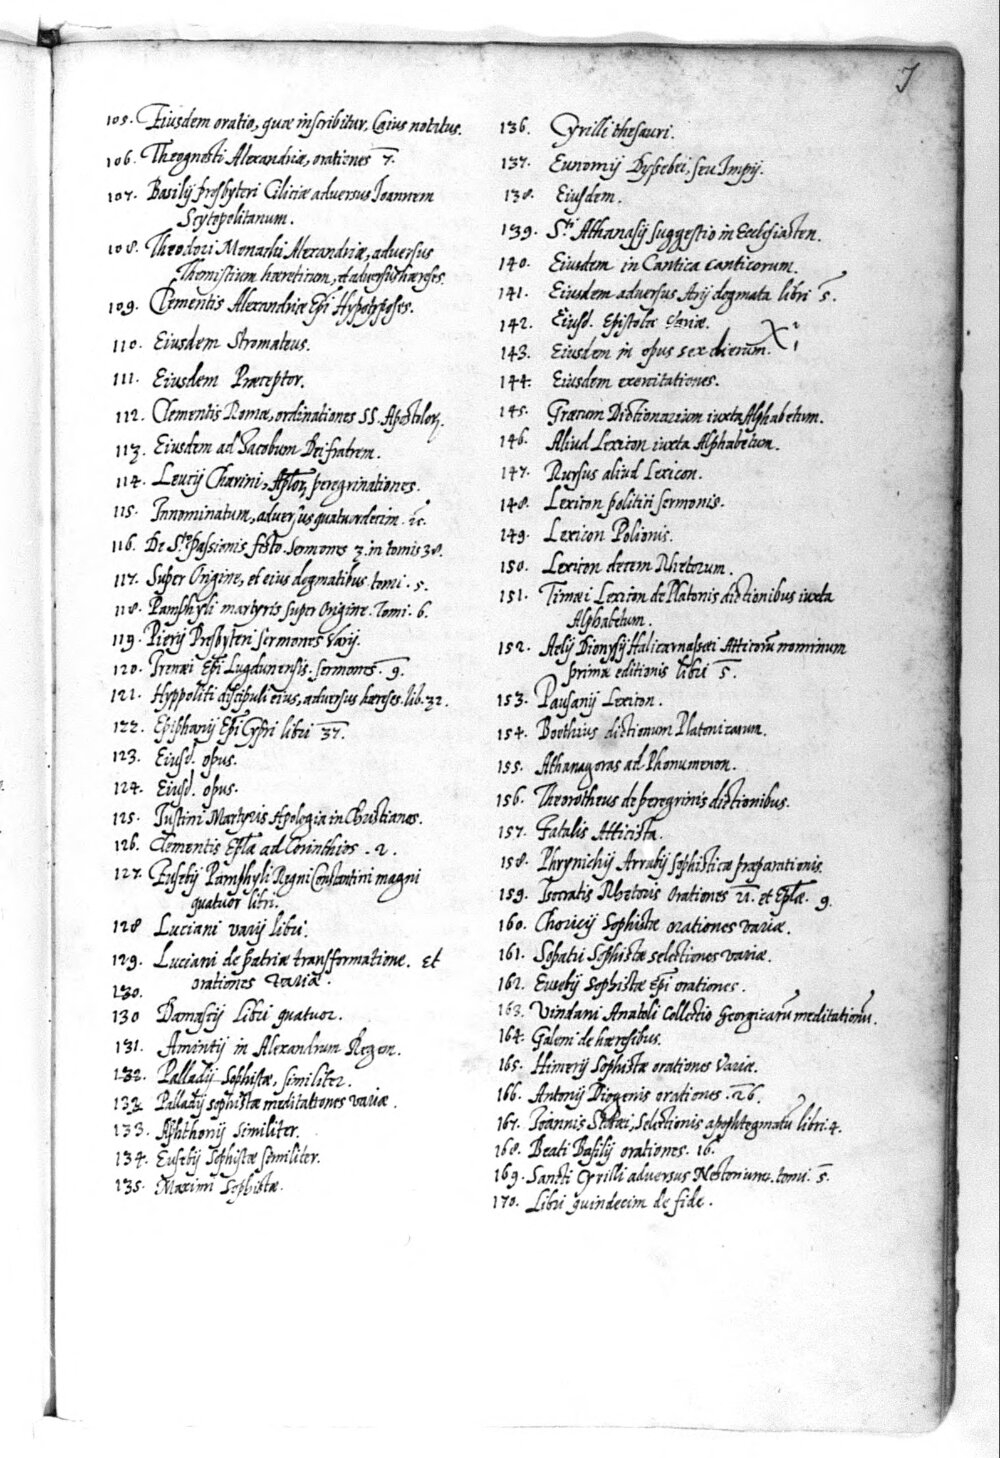 7
105. Eiusdem oratio, quæ inscribitur, Caius notitus.
106. Theognosti Alexandriæ, orationes 7.
107. Basilij presbyteri Ciliciæ adversus Joannem
Scytopolitanum.
108. Theodori Monachi Alexandriæ, adversus
Themistium hæreticum, et adversus hæreses.
109. Clementis Alexandriæ Epi Hypotyposes.
110. Eiusdem Stromateus.
111. Eiusdem Præceptor.
112. Clementis Romæ, ordinationes SS. Apostolor.
113. Eiusdem ad Jacobum Dei fratrem.
114. Leucij Charini, Aplor, peregrinationes.
115. Innominatum, adversus quatuordecim.
116. De Sto passionis festo. Sermones 3. in tomis 38.
117. Super Origine, et eius dogmatibus tomi. 5.
118. Pamphyli martyris super Origine. Tomi. 6.
119. Pierij Presbyteri sermones varij.
120. Irenæi Epi Lugdunensis. sermones. 9.
121. Hyppoliti discipuli eius, adversus hæreses. lib. 32.
122. Epiphanij Epi Cypri libri 37.
123. Eiusd. opus.
124. Eiusd. opus.
125. Justini Martyris Apologia in Christianos.
126. Clementis Eplæ ad Corinthios. 2.
127. Eusebij Pamphyli Regni Constantini magni
quatuor libri.
128 Luciani varij libri.
129. Luciani de patriæ transformatione. Et
orationes variæ.
130.
130 Damascij libri quatuor.
131. Amintij in Alexandrum Regem.
132. Palladij Sophistæ, similiter.
132 Palladij sophistæ meditationes variæ.
133. Aphthonij similiter.
134. Eusebij Sophistæ similiter.
135. Maximi Sophistæ.
136. Cyrilli thesauri.
137. Eunomij Dyssebei, seu Impij.
138. Eiusdem.
139. Sti Athanasij suggestio in Ecclesiasten.
140. Eiusdem in Cantica canticorum.
141. Eiusdem adversus Arij dogmata libri 5.
142. Eiusd. Epistolæ variæ.
143. Eiusdem in opus sex dierum.
144. Eiusdem exercitationes.
145. Græcum Dictionarium iuxta Alphabetum.
146. Aliud Lexicon iuxta Alphabetum.
147. Rursus aliud Lexicon.
148. Lexicon politici sermonis.
149. Lexicon Polionis.
150. Lexicon decem Rhetorum.
151. Timæi Lexicon de Platonis dictionibus iuxta
Alphabetum.
152. Aelij Dionysij Halicarnassæi Atticorum nominum
primæ editionis libri 5.
153. Pausanij Lexicon.
154. Boethius dictionum Platonicarum.
155. Athanagoras ad Phonumenon.
156. Theorotheus de peregrinis dictionibus.
157. Fatalis Atticista.
158. Phrynichij Arrabij sophisticæ præparationis.
159. Isocratis Rhetoris orationes 21. et Eplæ. 9.
160. Choricij Sophistæ orationes variæ.
161. Sopatri Sophistæ selectiones variæ.
162. Eusebij Sophistæ Epi orationes.
163. Vindani Anatoli Collectio Georgicarum meditationum.
164. Galeni de hæresibus.
165. Himerij Sophistæ orationes variæ.
166. Antonij Diogenis orationes. 26.
167. Joannis Stobæi, Selectionis apophtegmatum libri. 4.
168. Beati Basilij orationes. 16.
169. Sancti Cyrilli adversus Nestorium. tomi. 5.
170. Libri quindecim de fide.